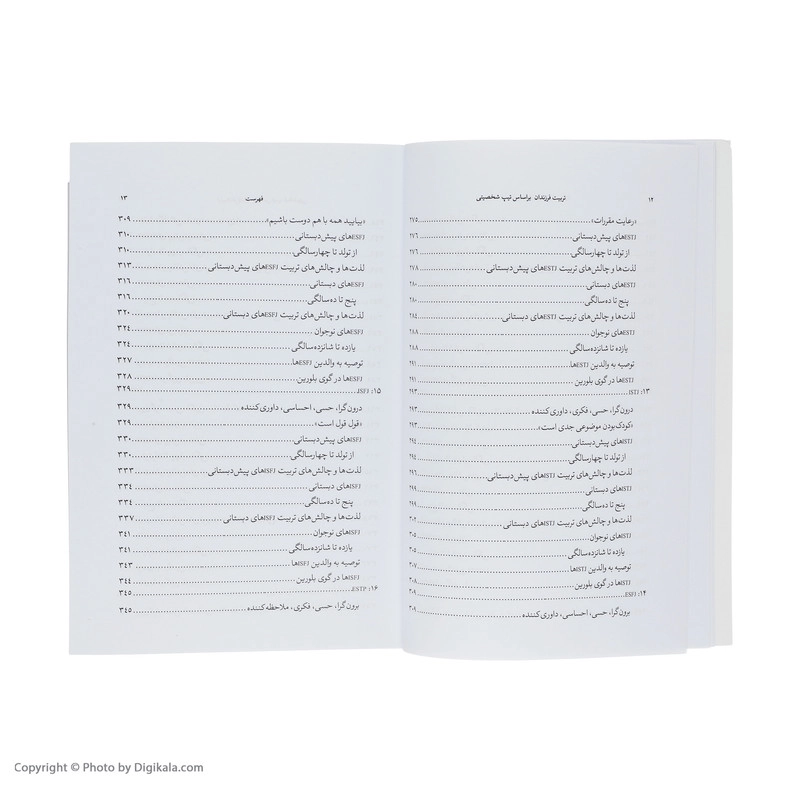 ۱۲ تربیت فرزندان براساس تیپ شخصیتی
«رعایت مقررات» ۲۷۵
ESTJهای پیش‌دبستانی ۲۷۶
از تولد تا چهارسالگی ۲۷۶
لذت‌ها و چالش‌های تربیت ESTJهای پیش‌دبستانی ۲۷۸
ESTJهای دبستانی ۲۸۰
پنج تا ده‌سالگی ۲۸۰
لذت‌ها و چالش‌های تربیت ESTJهای دبستانی ۲۸۴
ESTJهای نوجوان ۲۸۸
یازده تا شانزده‌سالگی ۲۸۸
توصیه به والدین ESTJها ۲۹۱
ESTJها در گوی بلورین ۲۹۱
۱۳: ISTJ ۲۹۳
درون‌گرا، حسی، فکری، داوری‌کننده ۲۹۳
«کودک‌بودن موضوعی جدی است» ۲۹۳
ISTJهای پیش‌دبستانی ۲۹۴
از تولد تا چهارسالگی ۲۹۴
لذت‌ها و چالش‌های تربیت ISTJهای پیش‌دبستانی ۲۹۶
ISTJهای دبستانی ۲۹۹
پنج تا ده‌سالگی ۲۹۹
لذت‌ها و چالش‌های تربیت ISTJهای دبستانی ۳۰۲
ISTJهای نوجوان ۳۰۵
یازده تا شانزده‌سالگی ۳۰۵
توصیه به والدین ISTJها ۳۰۷
ISTJها در گوی بلورین ۳۰۸
۱۴: ESFJ ۳۰۹
برون‌گرا، حسی، احساسی، داوری‌کننده ۳۰۹
فهرست ۱۳
«بیایید همه با هم دوست باشیم» ۳۰۹
ESFJهای پیش‌دبستانی ۳۱۰
از تولد تا چهارسالگی ۳۱۰
لذت‌ها و چالش‌های تربیت ESFJهای پیش‌دبستانی ۳۱۳
ESFJهای دبستانی ۳۱۶
پنج تا ده‌سالگی ۳۱۶
لذت‌ها و چالش‌های تربیت ESFJهای دبستانی ۳۲۰
ESFJهای نوجوان ۳۲۴
یازده تا شانزده‌سالگی ۳۲۴
توصیه به والدین ESFJها ۳۲۷
ESFJها در گوی بلورین ۳۲۸
۱۵: ISFJ ۳۲۹
درون‌گرا، حسی، احساسی، داوری‌کننده ۳۲۹
«قول قول است» ۳۲۹
ISFJهای پیش‌دبستانی ۳۳۰
از تولد تا چهارسالگی ۳۳۰
لذت‌ها و چالش‌های تربیت ISFJهای پیش‌دبستانی ۳۳۳
ISFJهای دبستانی ۳۳۴
پنج تا ده‌سالگی ۳۳۴
لذت‌ها و چالش‌های تربیت ISFJهای دبستانی ۳۳۷
ISFJهای نوجوان ۳۴۱
یازده تا شانزده‌سالگی ۳۴۱
توصیه به والدین ISFJها ۳۴۳
ISFJها در گوی بلورین ۳۴۴
۱۶: ESTP ۳۴۵
برون‌گرا، حسی، فکری، ملاحظه‌کننده ۳۴۵
Copyright © Photo by Digikala.com